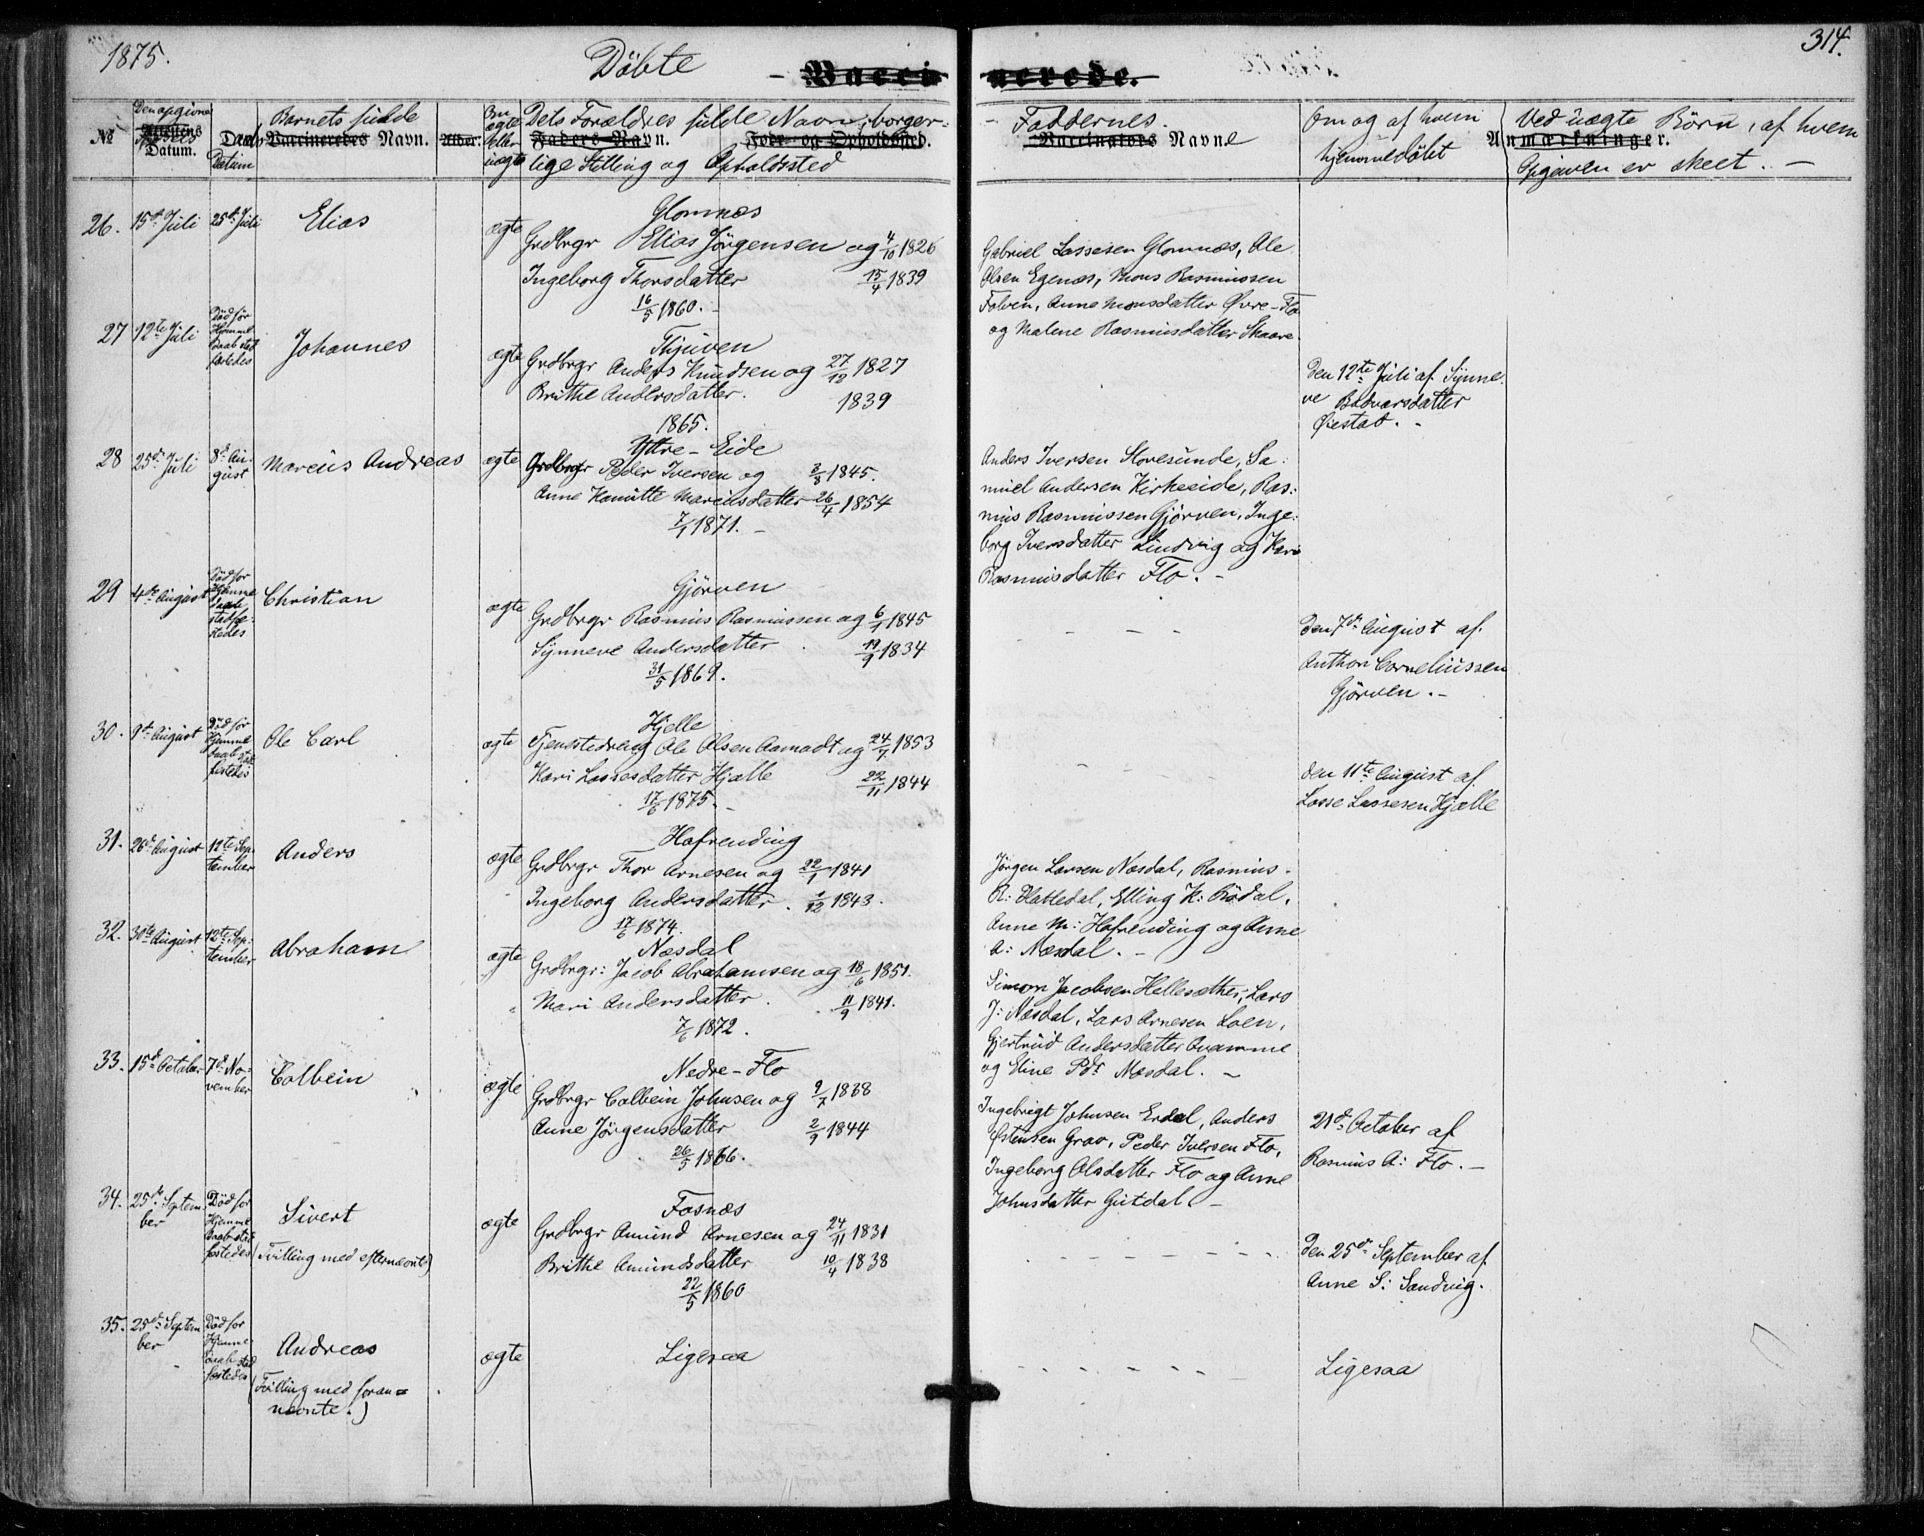 1875.
Döbte
Vaccinerede.
314.
No
Den opgivne
Attestens
Datum.
Daabs
Datum
Barnets fulde
Vaccineredes Navn.
Alder.
Om
ægte
eller
uægte
Dets Forældres fulde Navn, borger-
Faders Navn. Føde- og Opholdssted.
lige Stilling og Opholdssted
Faddernes
Vaccinators Navne
Om og af hvem
hjemmedøbt
Ved uægte Börn, af hvem
Anmærkninger.
Opgaven er skeet. —
26. 15de Juli 25de Juli Elias ægte
Glomnæs
Grdbrgr Elias Jörgensen og 4/10 1826
Ingeborg Thorsdatter 15/4 1839
16/5 1860. -
Gabriel Lassesen Glomnæs, Ole
Olsen Egenæs, Mons Rasmussen
Folven, Anne Monsdatter Øvre-Flo
og Malene Rasmusdatter Skaare.
27 12te Juli
Död før
Hjemme
Daab stad
fæstedes
Johannes ægte
Tjugen
Grdbrgr Anders Knudsen og 27/12 1827
Brithe Andersdatter. 1839
1865.
Den 12te Juli af Synne-
ve Bødvarsdatter
Øiestad. -
28 25de Juli 8de Au-
gust
Marcus Andreas ægte
Ytre-Eide
Grdbrgr Peder Iversen og 3/8 1845.
Anne Kamitte Marcusdatter 26/4 1854
7/1 1871. -
Anders Iversen Stovesunde, Sa-
muel Andersen Kirkeeide, Ras:
mus Rasmussen Gjörven, Inge:
borg Iversdatter Lindvig og Kari
Rasmusdatter Flo. -
29 4de August
Död for
Hjemme
daab
stadfæ-
stedes
Christian ægte
Gjörven
Grdbrgr Rasmus Rasmussen og 6/1 1845
Synneve Andersdatter 19/9 1834
31/5 1869.
Den 7de August af
Anthon Corneliussen
Gjörven. -
30. 9de August
Död for
Hjemme
daab stad
fæstedes
Ole Carl ægte
Hjelle
Tjenestedreng Ole Olsen Aamodt og 24/7 1853
Kari Lassesdatter Hjelle 22/11 1844
17/6 1875. -
den 11te August af
Lasse Lassesen Hjelle
31. 26de August 12te Sep-
tember
Anders ægte
Hafrending
Grdbrgr Thor Arnesen og 22/1 1841
Ingeborg Andersdatter. 1/12 1843.
17/6 1874.
Jörgen Larsen Næsdal, Rasmus
R: Hattedal, Elling K: Bödal,
Anne M: Hafrending og Anne
A: Næsdal. -
32. 30te August 12te Sep-
tember
Abraham ægte
Næsdal
Grdbrgr: Jacob Abrahamsen og 18/6 1851.
Mari Andersdatter. 11/9 1841.
7/6 1872.
Simon Jacobsen Hellesæther, Lars
J: Næsdal, Lars Arnesen Loen,
Gjertrud Andersdatter Qvamme
og Eline Pdr Næsdal. -
33. 15de October 7de No-
vember
Colbein ægte
Nedre-Flo
Grdbrgr Colbein Johnsen og 9/7 1838
Anne Jörgensdatter 2/9 1844
26/5 1866.
Ingebrigt Johnsen Erdal, Anders
Östensen Grov, Peder Iversen Flo,
Ingeborg Olsdatter Flo og Anne
Johnsdatter Gutdal. -
21de October af
Rasmus A: Flo. -
34. 25de Septem-
ber
Död for
Hjemme
daab stad
fæstedes
Sivert
(Tvilling med efternævnte)
ægte
Fosnæs
Grdbrgr Amund Arnesen og 24/11 1831
Brithe Amundsdatter 10/4 1838
22/5 1860
Den 25de September af
Anne S: Sandvig.
35. 25de Septem
ber
Död for
Hjemme
daab stad
fæstedes
Andreas
(Tvilling med foran=
nævnte.)
ægte
Ligesaa
Ligesaa